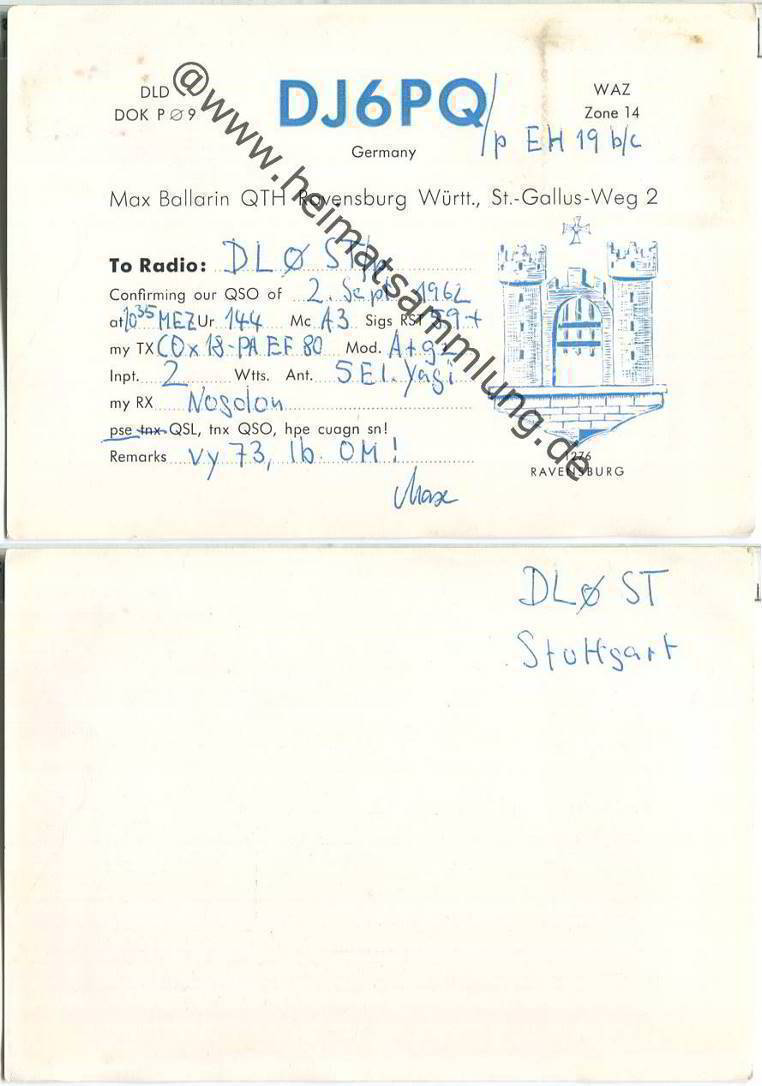 DLD DJ6PQ/p WAZ
DOK PØ9 Zone 14
EH 19 b/c
Germany
Max Ballarin QTH Ravensburg Württ., St.-Gallus-Weg 2
To Radio: DLØ
Confirming our QSO of 2. Sept. 1962
at 10³⁵ MEZ Ur 144 Mc A3 Sigs RST 59+
my TX CO x 18-PA EF 80 Mod.
Inpt. 2 Wtts. Ant. 5 El. Yagi
my RX
pse tnx QSL, tnx QSO, hpe cuagn sn!
Remarks vy 73, lb. OM!
Max
1276
RAVENSBURG
@www.heimatsammlung.de
DLØ ST
Stuttgart